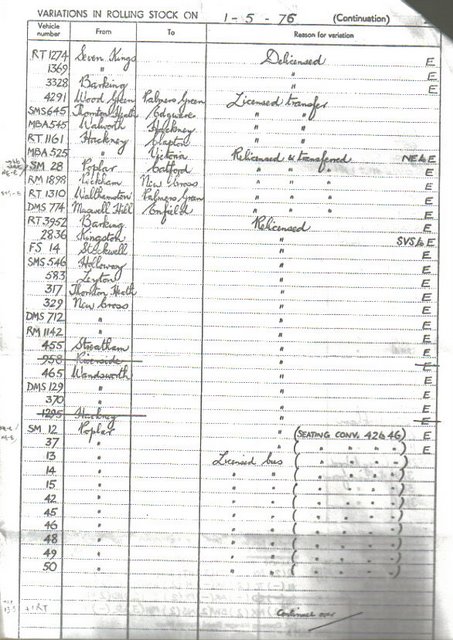 VARIATIONS IN ROLLING STOCK ON 1-5-76 (Continuation)
Vehicle number From To Reason for variation
RT 1274 Seven Kings Delicensed E
1369 " " E
3328 Barking " E
4291 Wood Green Palmers Green Licensed transfer
SMS 645 Thornton Heath Edgware "
MBA 545 Walworth Hackney " "
RT 1161 Hackney Clapton " "
MBA 525 " Victoria Relicensed & transferred NE to E
SM 28 Poplar Catford " " " E
RM 1898 Peckham New Cross " " " E
RT 1310 Walthamstow Palmers Green " " " E
DMS 774 Muswell Hill Enfield " " " E
RT 3952 Barking Relicensed E
2836 Kingston " SVS to E
FS 14 Stockwell " E
SMS 546 Holloway " E
583 Leyton " E
317 Thornton Heath " E
329 New Cross " E
DMS 712 " " E
RM 1142 " " E
455 Streatham " E
958 Riverside " E
465 Wandsworth " E
DMS 129 " " E
370 " " E
1295 Hackney " E
SM 12 Poplar " (SEATING CONV. 42 to 46) E
37 " " ( " " " " ) E
13 " Licensed bus ( " " " " )
14 " " " ( " " " " )
15 " " " ( " " " " )
42 " " " ( " " " " )
45 " " " ( " " " " )
46 " " " ( " " " " )
48 " " " ( " " " " )
49 " " " ( " " " " )
50 " " " ( " " " " )
Continued over